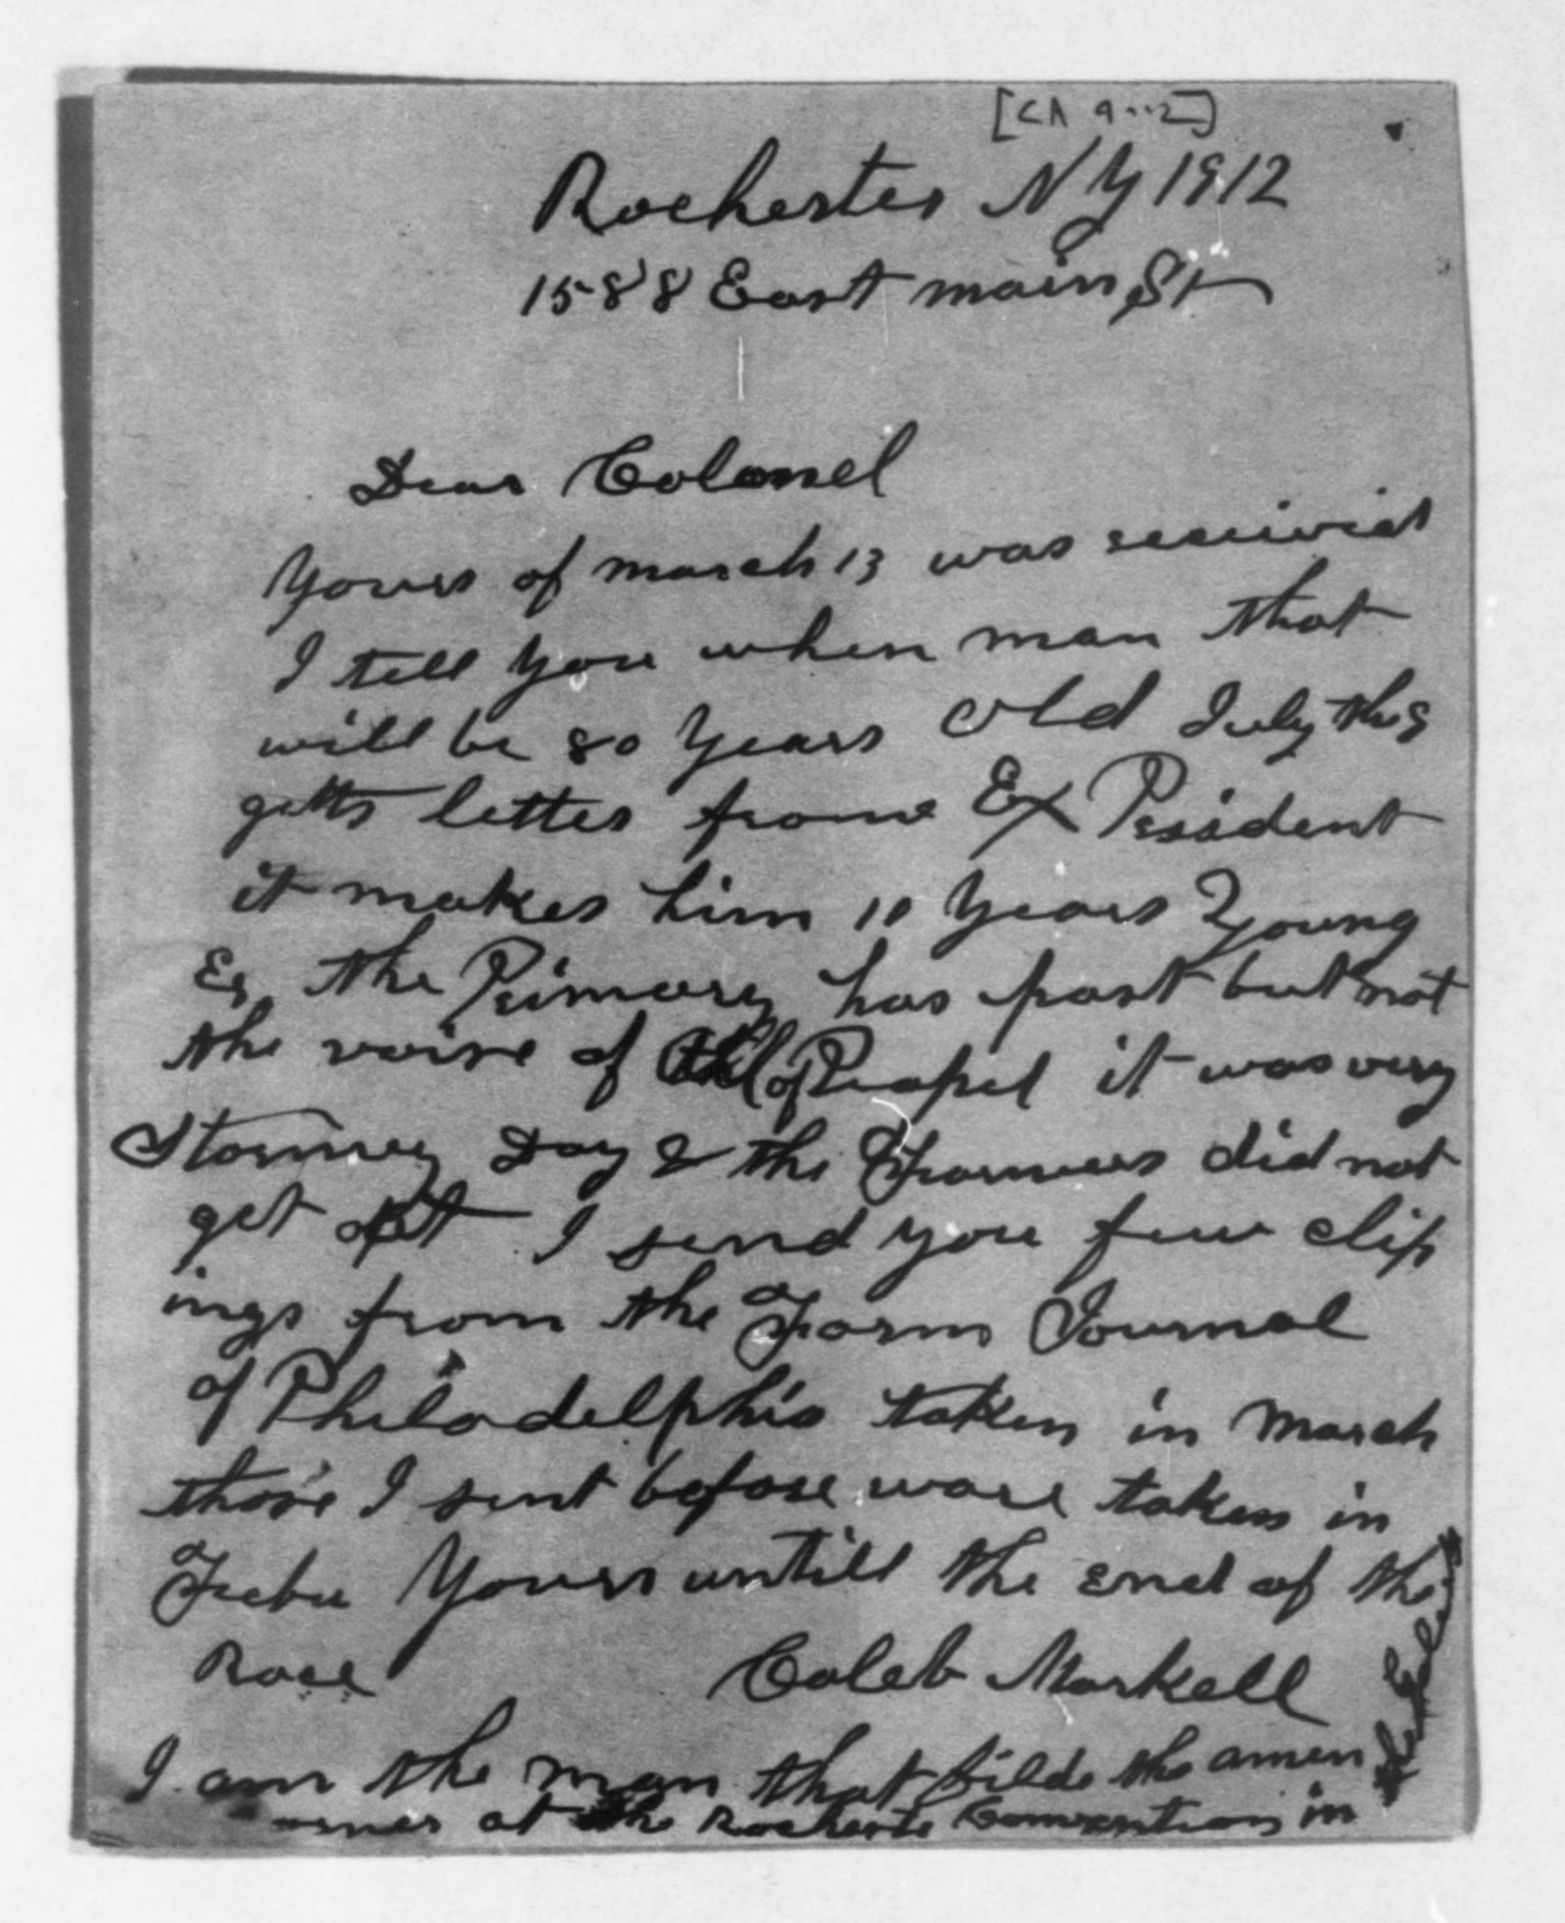 Rochester N Y 1912
1588 East main St
Dear Colonel
Yours of march 13 was receivied
I tell you when man that
will be 80 Years old July the 9
getts letter from Ex President
it makes him 10 Years Young
Er, the Primary has past but not
the voise of of Peapel it was very
Stormey Day & the Farmers did not
get I send you few clip
ings from the Farm Journal
of Philadelphia taken in March
those I sent before ware taken in
Febu Yours untill the end of the
Race Caleb Markell
I am the man that filde the amen
at the Rocheste Convention in